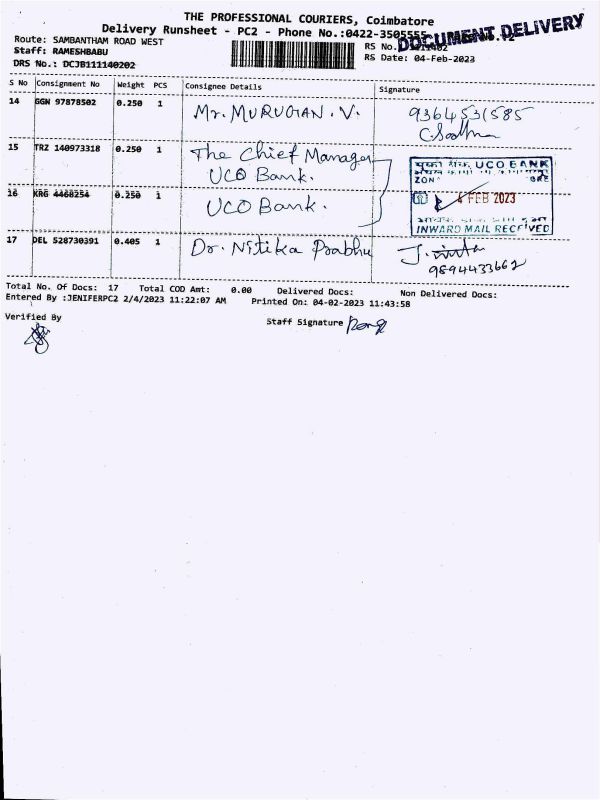 THE PROFESSIONAL COURIERS, Coimbatore
Delivery Runsheet - PC2 - Phone No.:0422-3505555
DOCUMENT DELIVERY
Route: SAMBANTHAM ROAD WEST
RS No.
Staff: RAMESHBABU
RS Date: 04-Feb-2023
DRS No.: DCJB111140202
S No Consignment No Weight PCS Consignee Details Signature
14 GGN 97878502 0.250 1 Mr. MURUGAN. V. 9364531585
15 TRZ 140973318 0.250 1 The Chief Manager
UCO Bank.
UCO BANK
ZON
16 KRG 4468254 0.250 1 UCO Bank.
4 FEB 2023
INWARD MAIL RECEIVED
17 DEL 528730391 0.405 1 Dr. Nitika Prabhu
9894433662
Total No. Of Docs: 17 Total COD Amt: 0.00 Delivered Docs: Non Delivered Docs:
Entered By :JENIFERPC2 2/4/2023 11:22:07 AM Printed On: 04-02-2023 11:43:58
Verified By
Staff Signature